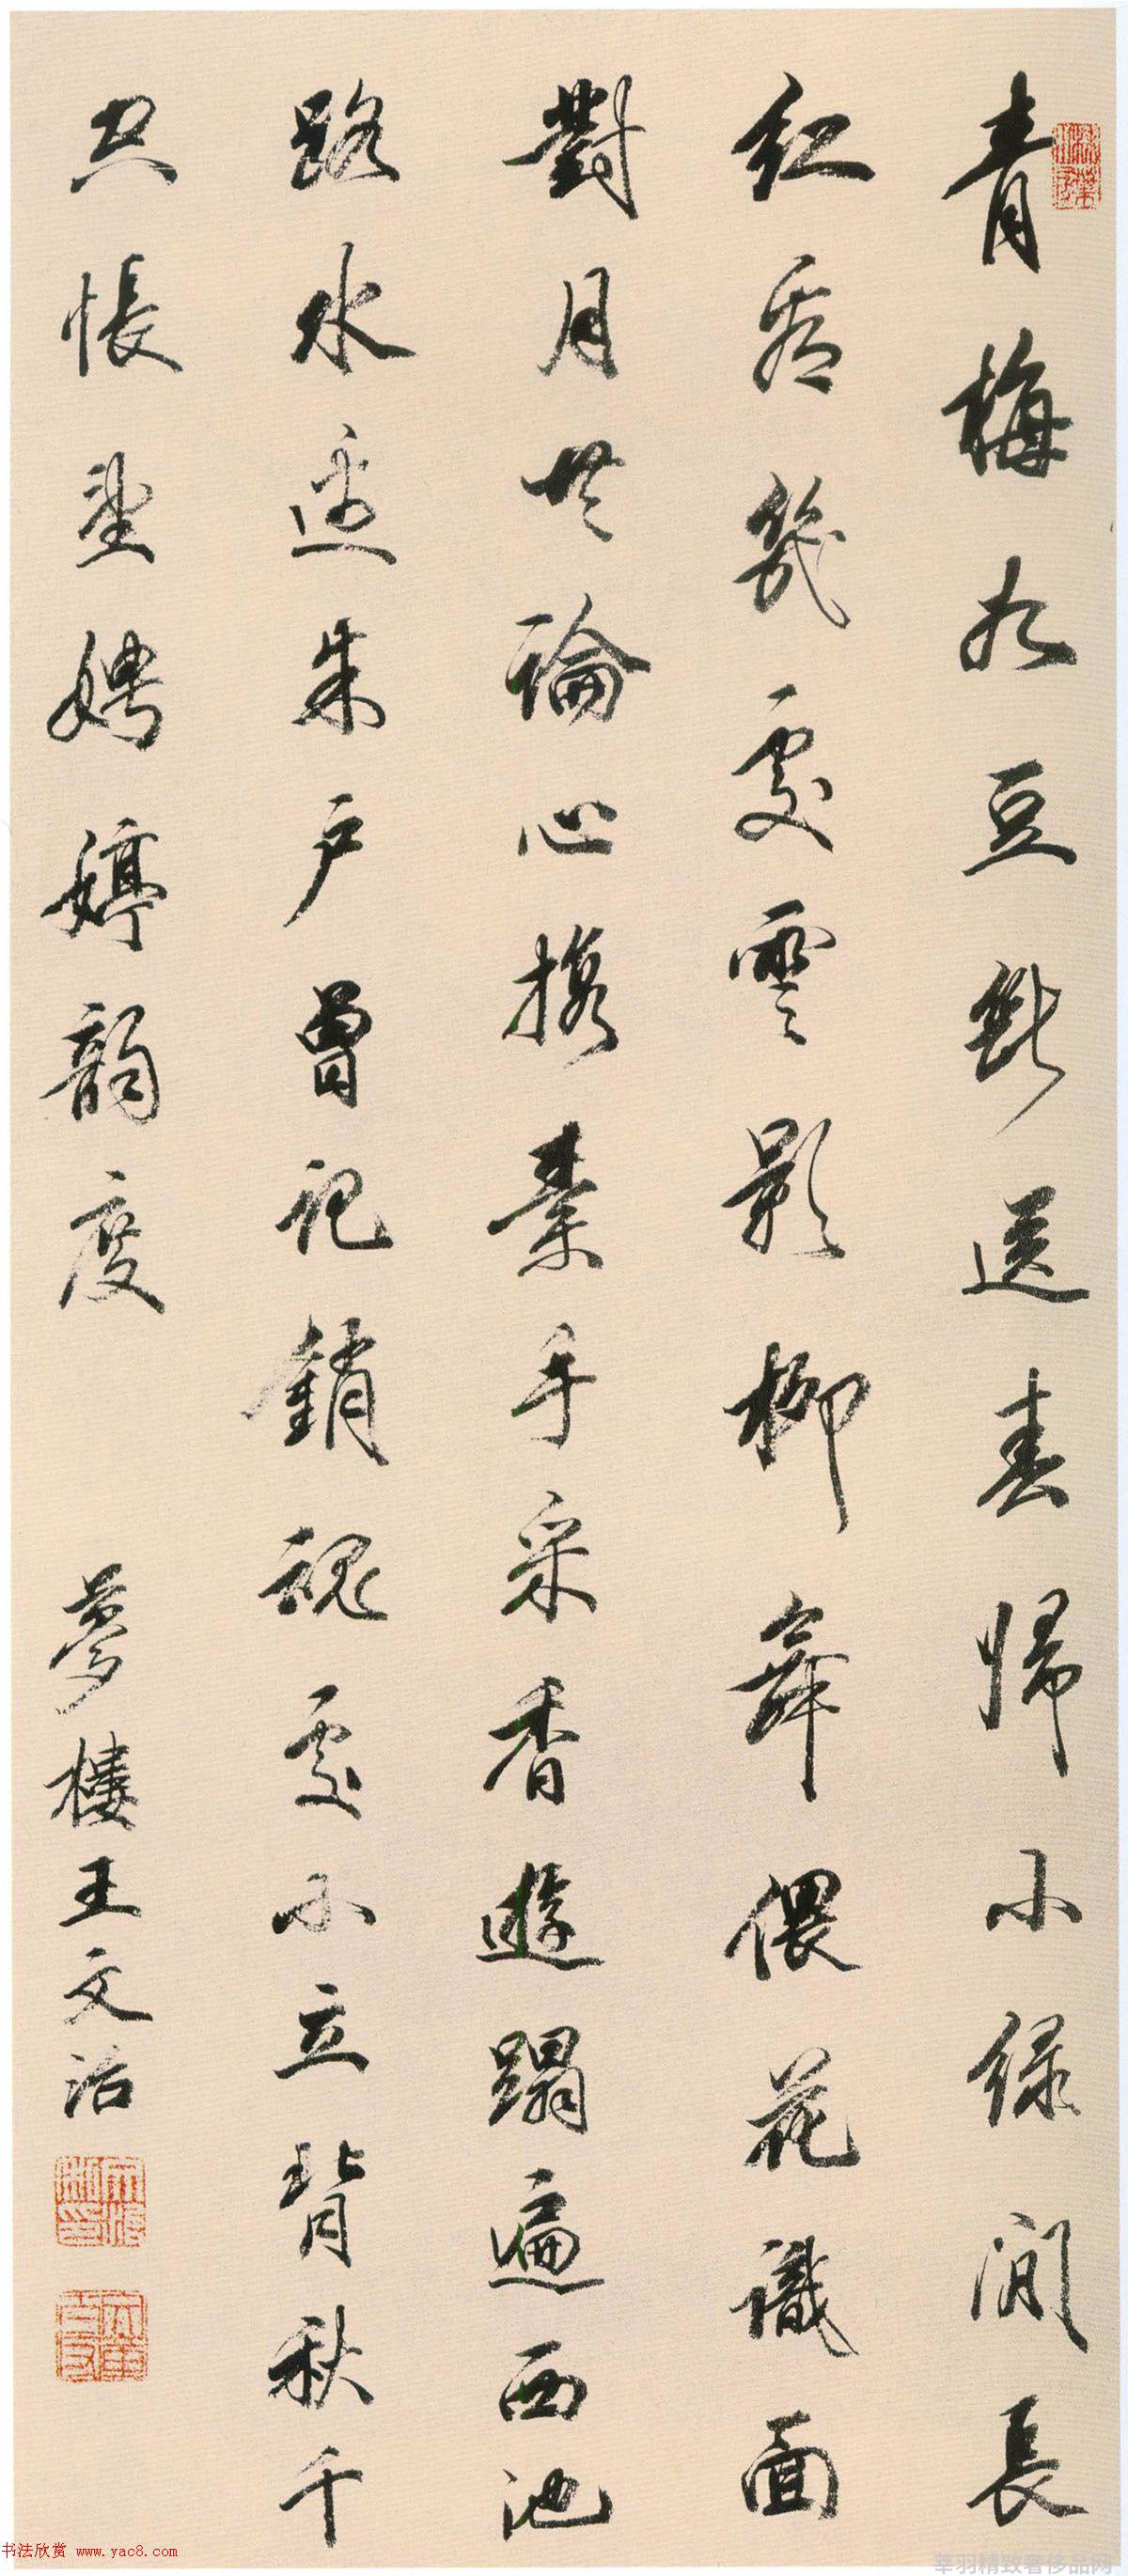 青梅如豆斷送春歸小綠閒長
紅看幾處雲影柳舞偎花識面
對月共論心携素手采香遊蹋遍西池
路水邊朱户曾記銷魂處小立背秋千
空悵望娉婷韵度
夢樓王文治
书法欣赏 www.yac8.com
莘羽精致奢侈品网